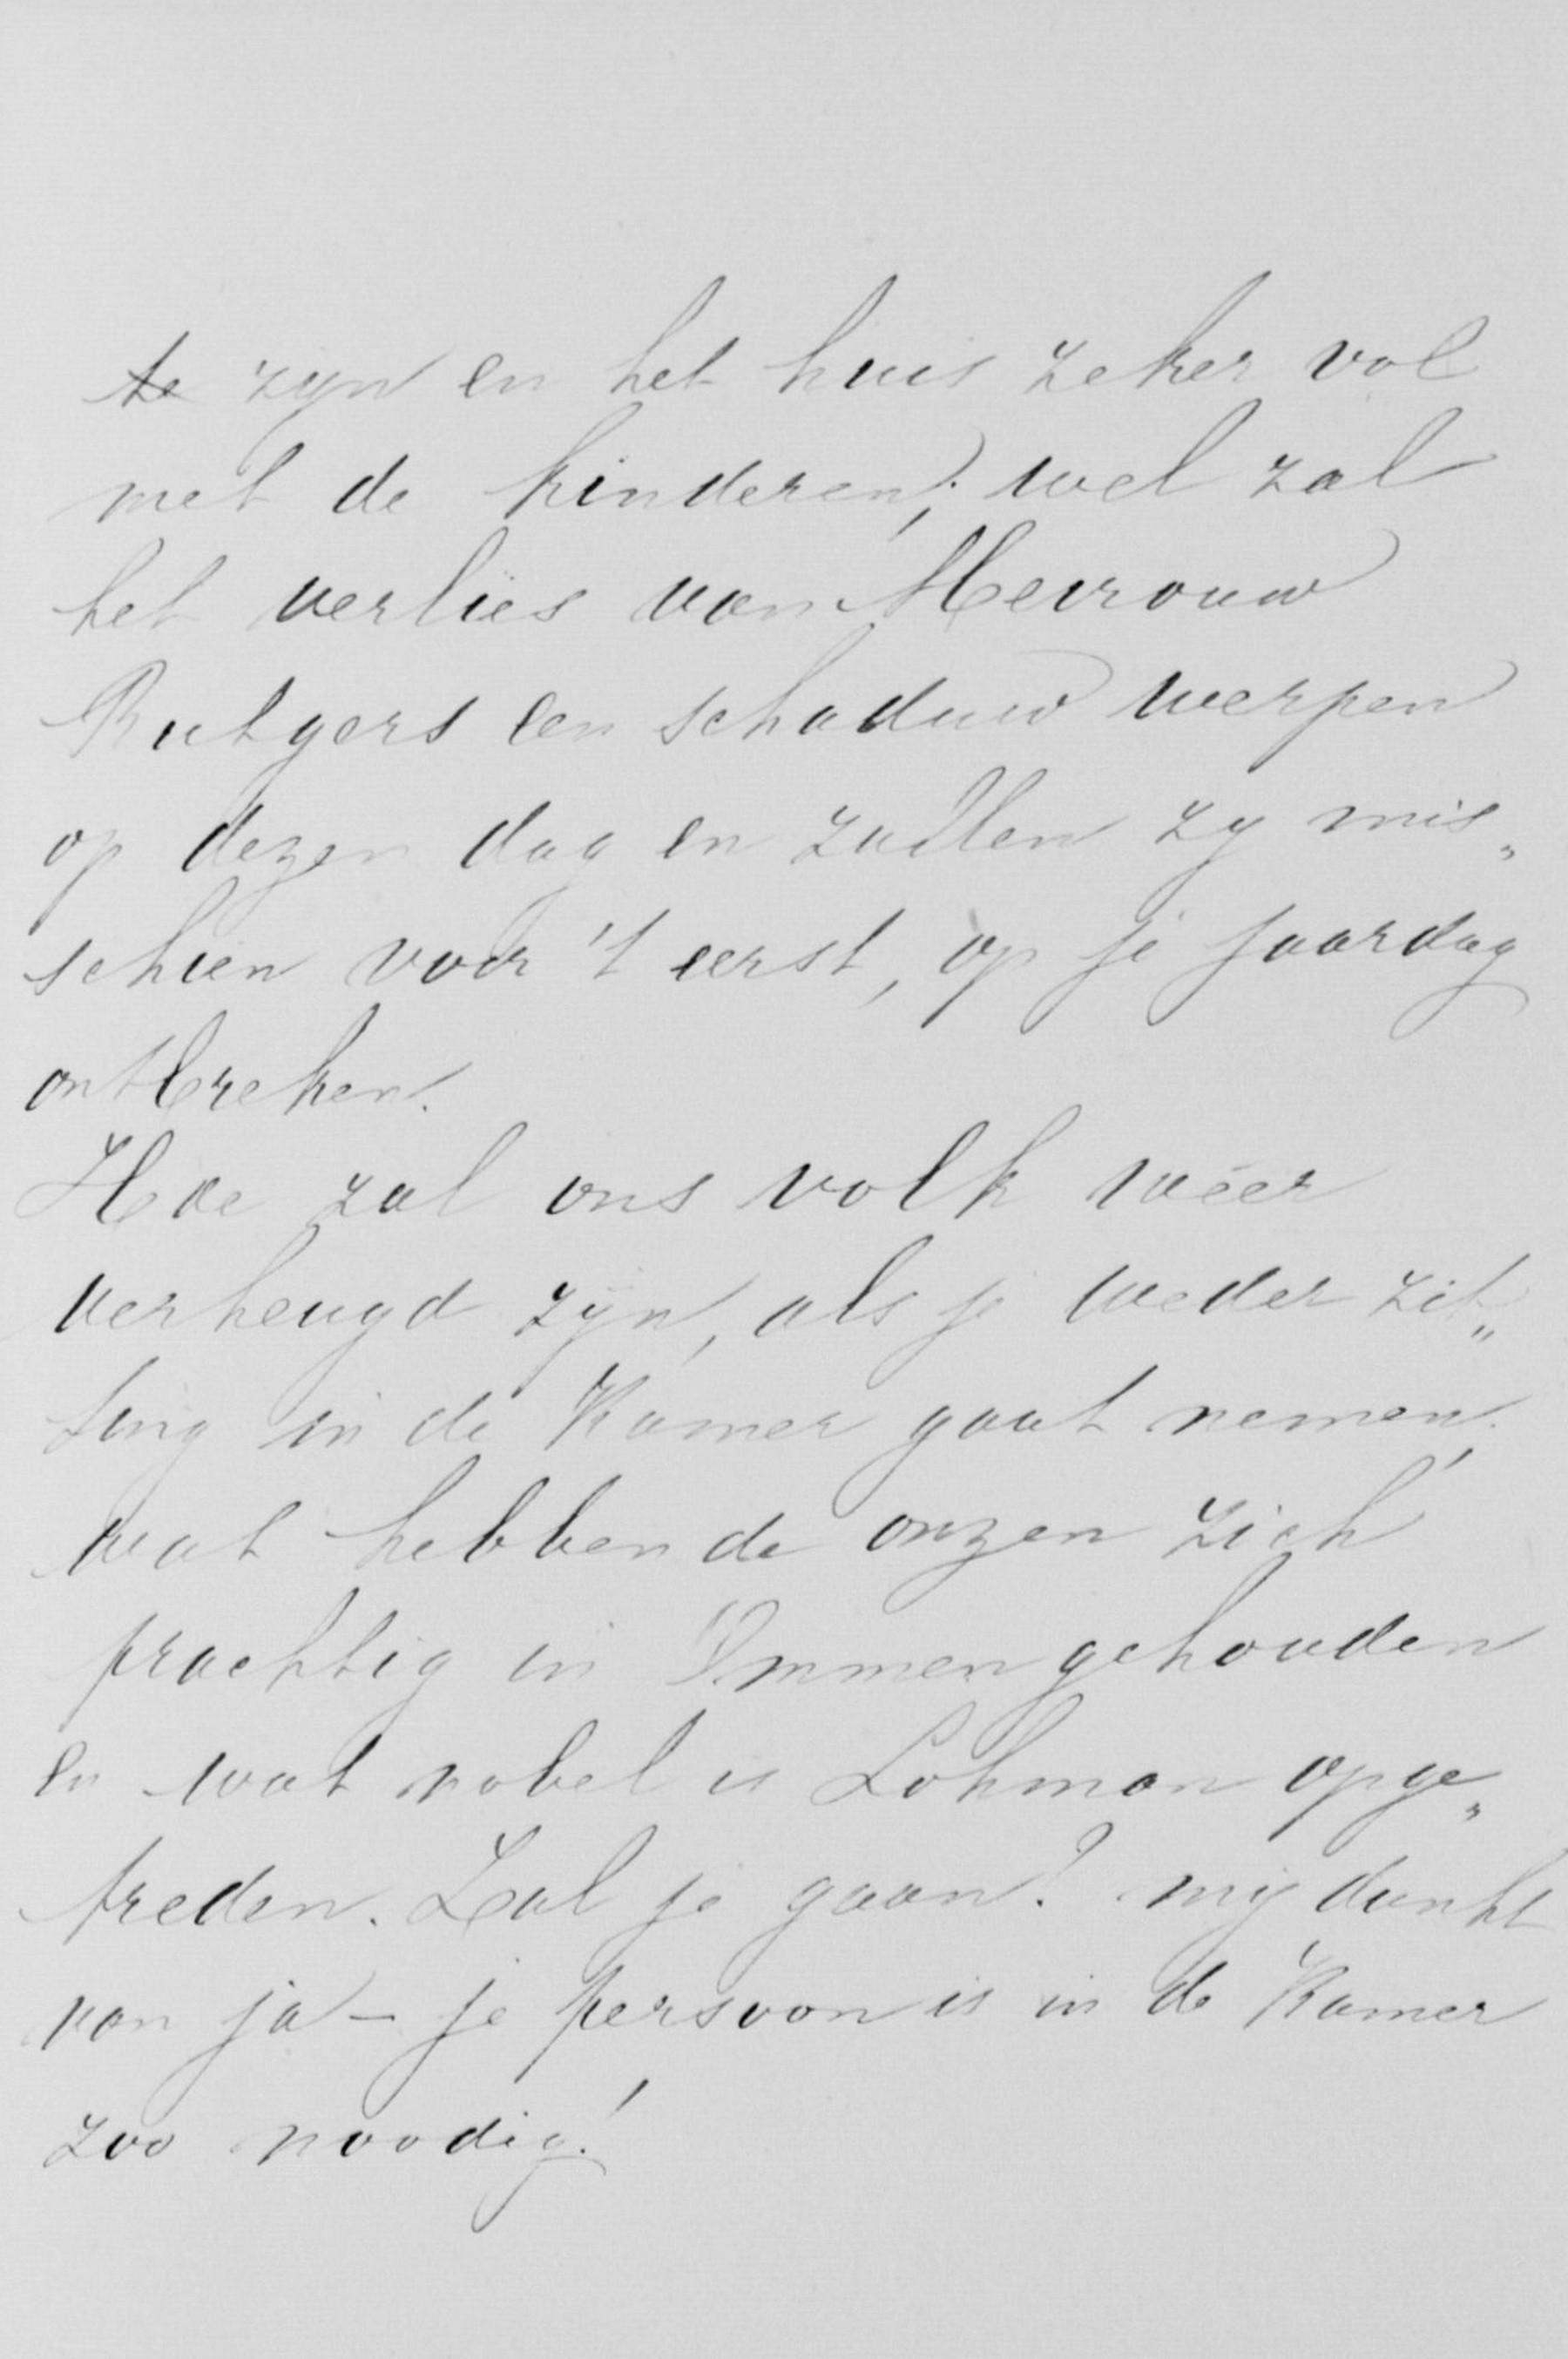 te zijn en het huis zeker vol
met de kinderen; wel zal
het verlies van Mevrouw
Rutgers een schaduw werpen
op dezen dag en zullen zy mis„
schien voor 't eerst, op je jaardag
ontbreken.
Hoe zal ons volk weer
verheugd zijn, als je weder zit„
ting in de Kamer gaat nemen!
wat hebben de onzen zich
prachtig in Ommen gehouden
en wat nobel is Lohman opge„
treden. Zal je gaan? mij dunkt
van ja – je persoon is in de Kamer
zoo noodig!